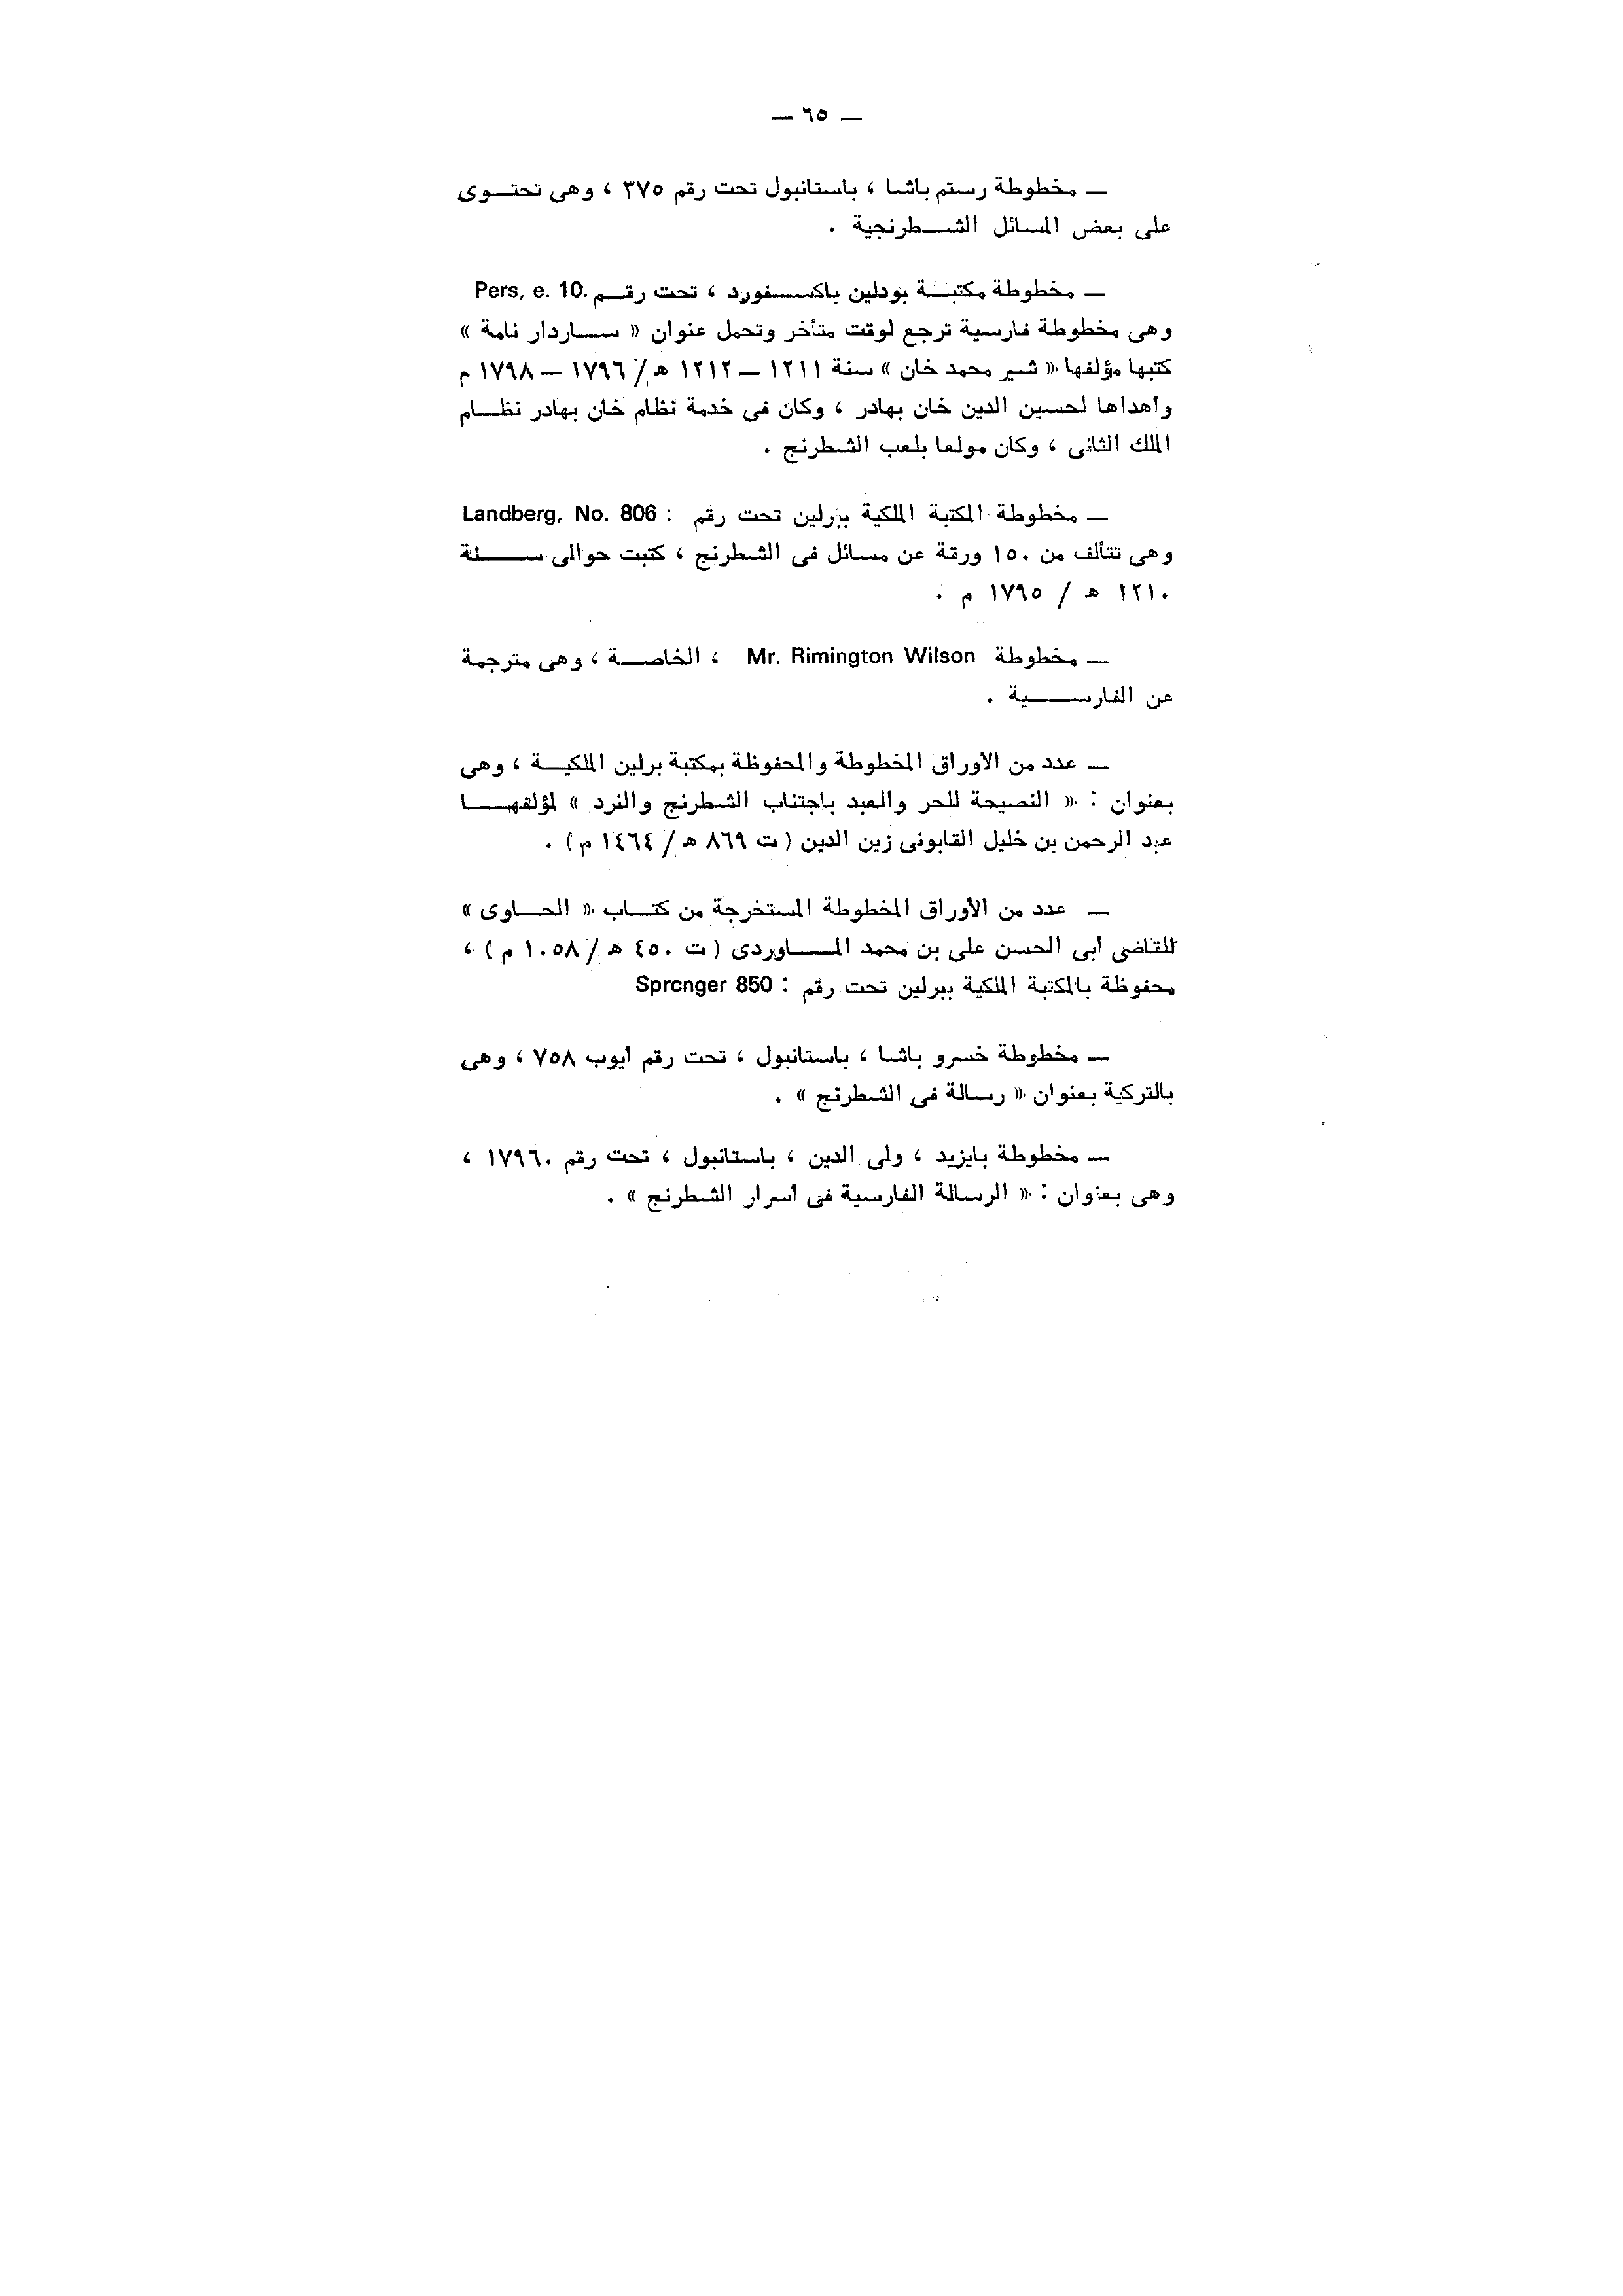 — ٦٥ —
— مخطوطة رستم باشا ، باستانبول تحت رقم ٣٧٥ ، وهى تحتوى
على بعض المسائل الشطرنجية .
— مخطوطة مكتبة بودلين باكسفورد ، تحت رقم Pers, e. 10.
وهى مخطوطة فارسية ترجع لوقت متأخر وتحمل عنوان « ساردار نامة »
كتبها مؤلفها « شير محمد خان » سنة ١٢١١ — ١٢١٢ هـ/ ١٧٩٦ — ١٧٩٨ م
وأهداها لحسين الدين خان بهادر ، وكان فى خدمة نظام خان بهادر نظام
الملك الثانى ، وكان مولعا بلعب الشطرنج .
— مخطوطة المكتبة الملكية ببرلين تحت رقم : Landberg, No. 806
وهى تتألف من ١٥٠ ورقة عن مسائل فى الشطرنج ، كتبت حوالى سنة
١٢١٠ هـ / ١٧٩٥ م .
— مخطوطة Mr. Rimington Wilson ، الخاصة ، وهى مترجمة
عن الفارسية .
— عدد من الأوراق المخطوطة والمحفوظة بمكتبة برلين الملكية ، وهى
بعنوان : « النصيحة للحر والعبد باجتناب الشطرنج والنرد » لمؤلفها
عبد الرحمن بن خليل القابونى زين الدين ( ت ٨٦٩ هـ / ١٤٦٤ م ) .
— عدد من الأوراق المخطوطة المستخرجة من كتاب « الحاوى »
للقاضى أبى الحسن على بن محمد الماوردى ( ت ٤٥٠ هـ / ١٠٥٨ م ) ،
محفوظة بالمكتبة الملكية ببرلين تحت رقم : Sprcnger 850
— مخطوطة خسرو باشا ، باستانبول ، تحت رقم أيوب ٧٥٨ ، وهى
بالتركية بعنوان « رسالة فى الشطرنج » .
— مخطوطة بايزيد ، ولى الدين ، باستانبول ، تحت رقم ١٧٩٦٠ ،
وهى بعنوان : « الرسالة الفارسية فى أسرار الشطرنج » .